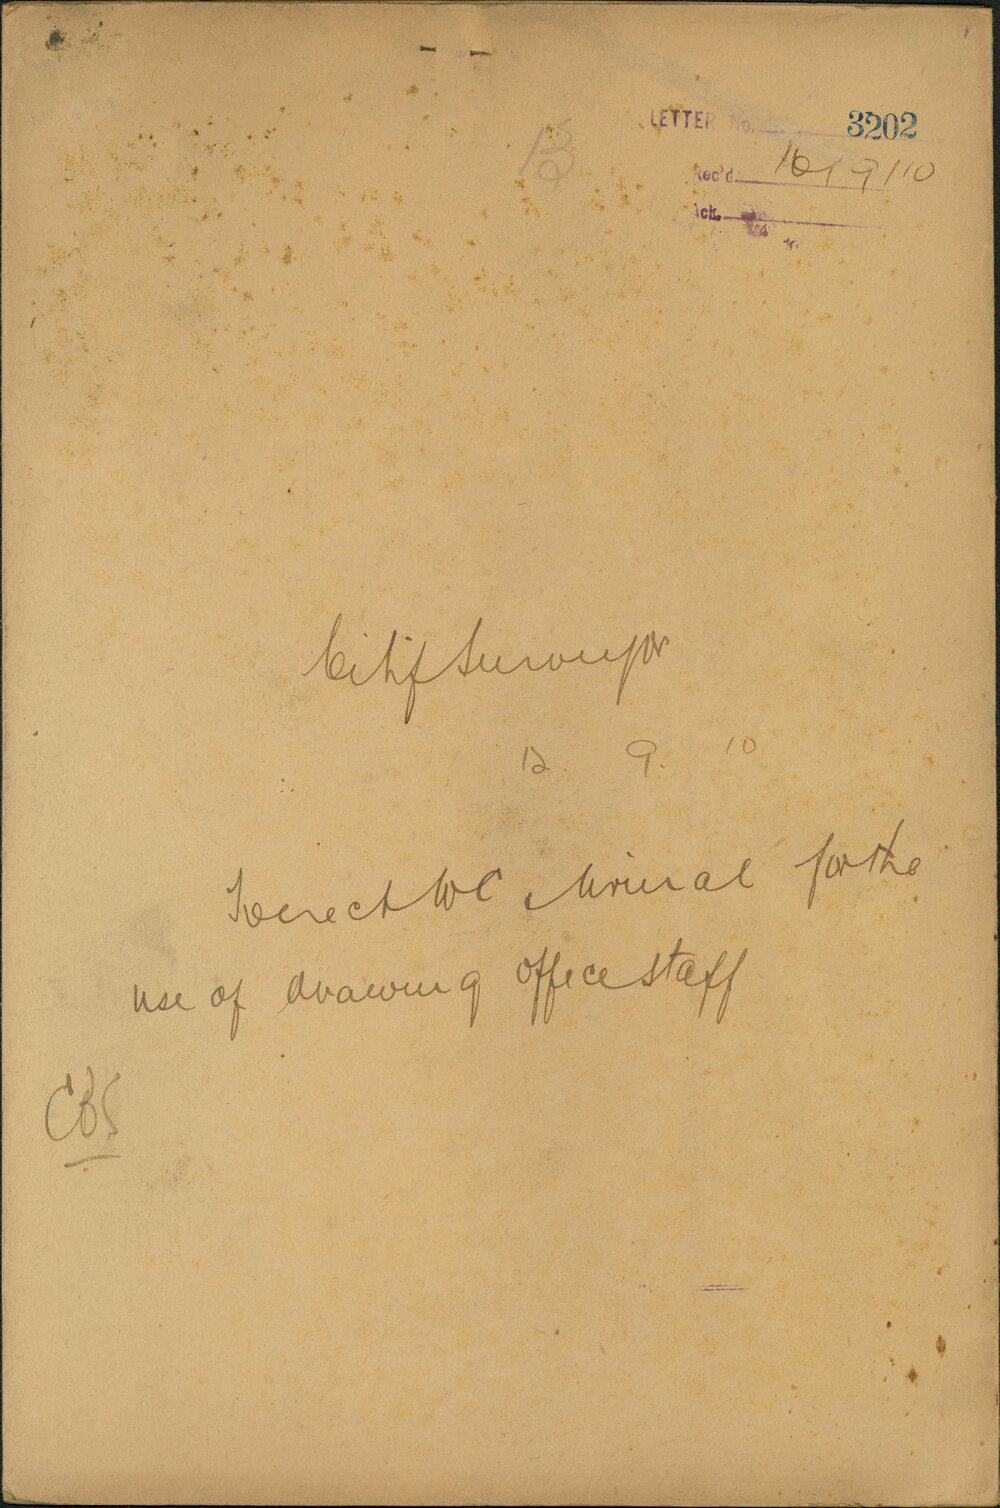 LETTER No. 3202
Rec'd 16/9/10
Ack.
City Surveyor
12. 9. 10
To erect WC & Urinal for the
use of drawing office staff
CBS